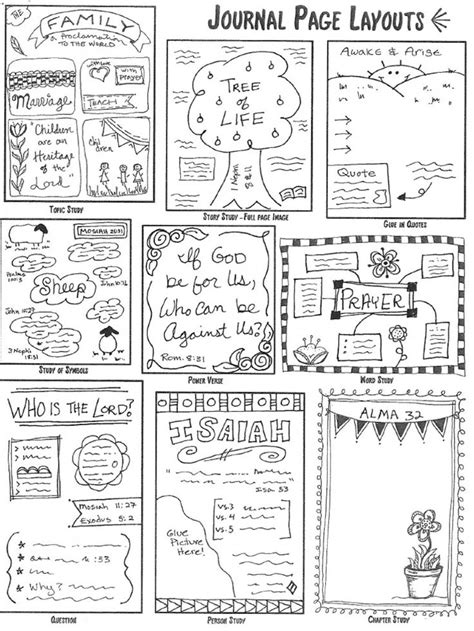 JOURNAL PAGE LAYOUTS
THE
FAMILY
a Proclamation
TO THE WORLD
Marriage
with
Prayer
TEACH
"Children
are an
Heritage
of the
Lord"
children
TOPIC STUDY
TREE
of
LIFE
1 Nephi
8 & 11
STORY STUDY - FULL PAGE IMAGE
Awake & Arise
Quote
GLUE IN QUOTES
MOSIAH
Psalms
100:3
John 10:16
Sheep
John 11:27
3 Nephi
STUDY OF SYMBOLS
If GOD
be for Us,
Who Can be
Against Us?
Rom. 8:31
POWER VERSE
PRAYER
WORD STUDY
WHO IS THE LORD?
Mosiah 11:27
Exodus 5:2
Why?
QUESTION
ISAIAH
Isa 53
vs. 3
vs. 4
vs. 5
Glue
Picture
Here!
PERSON STUDY
ALMA 32
CHAPTER STUDY